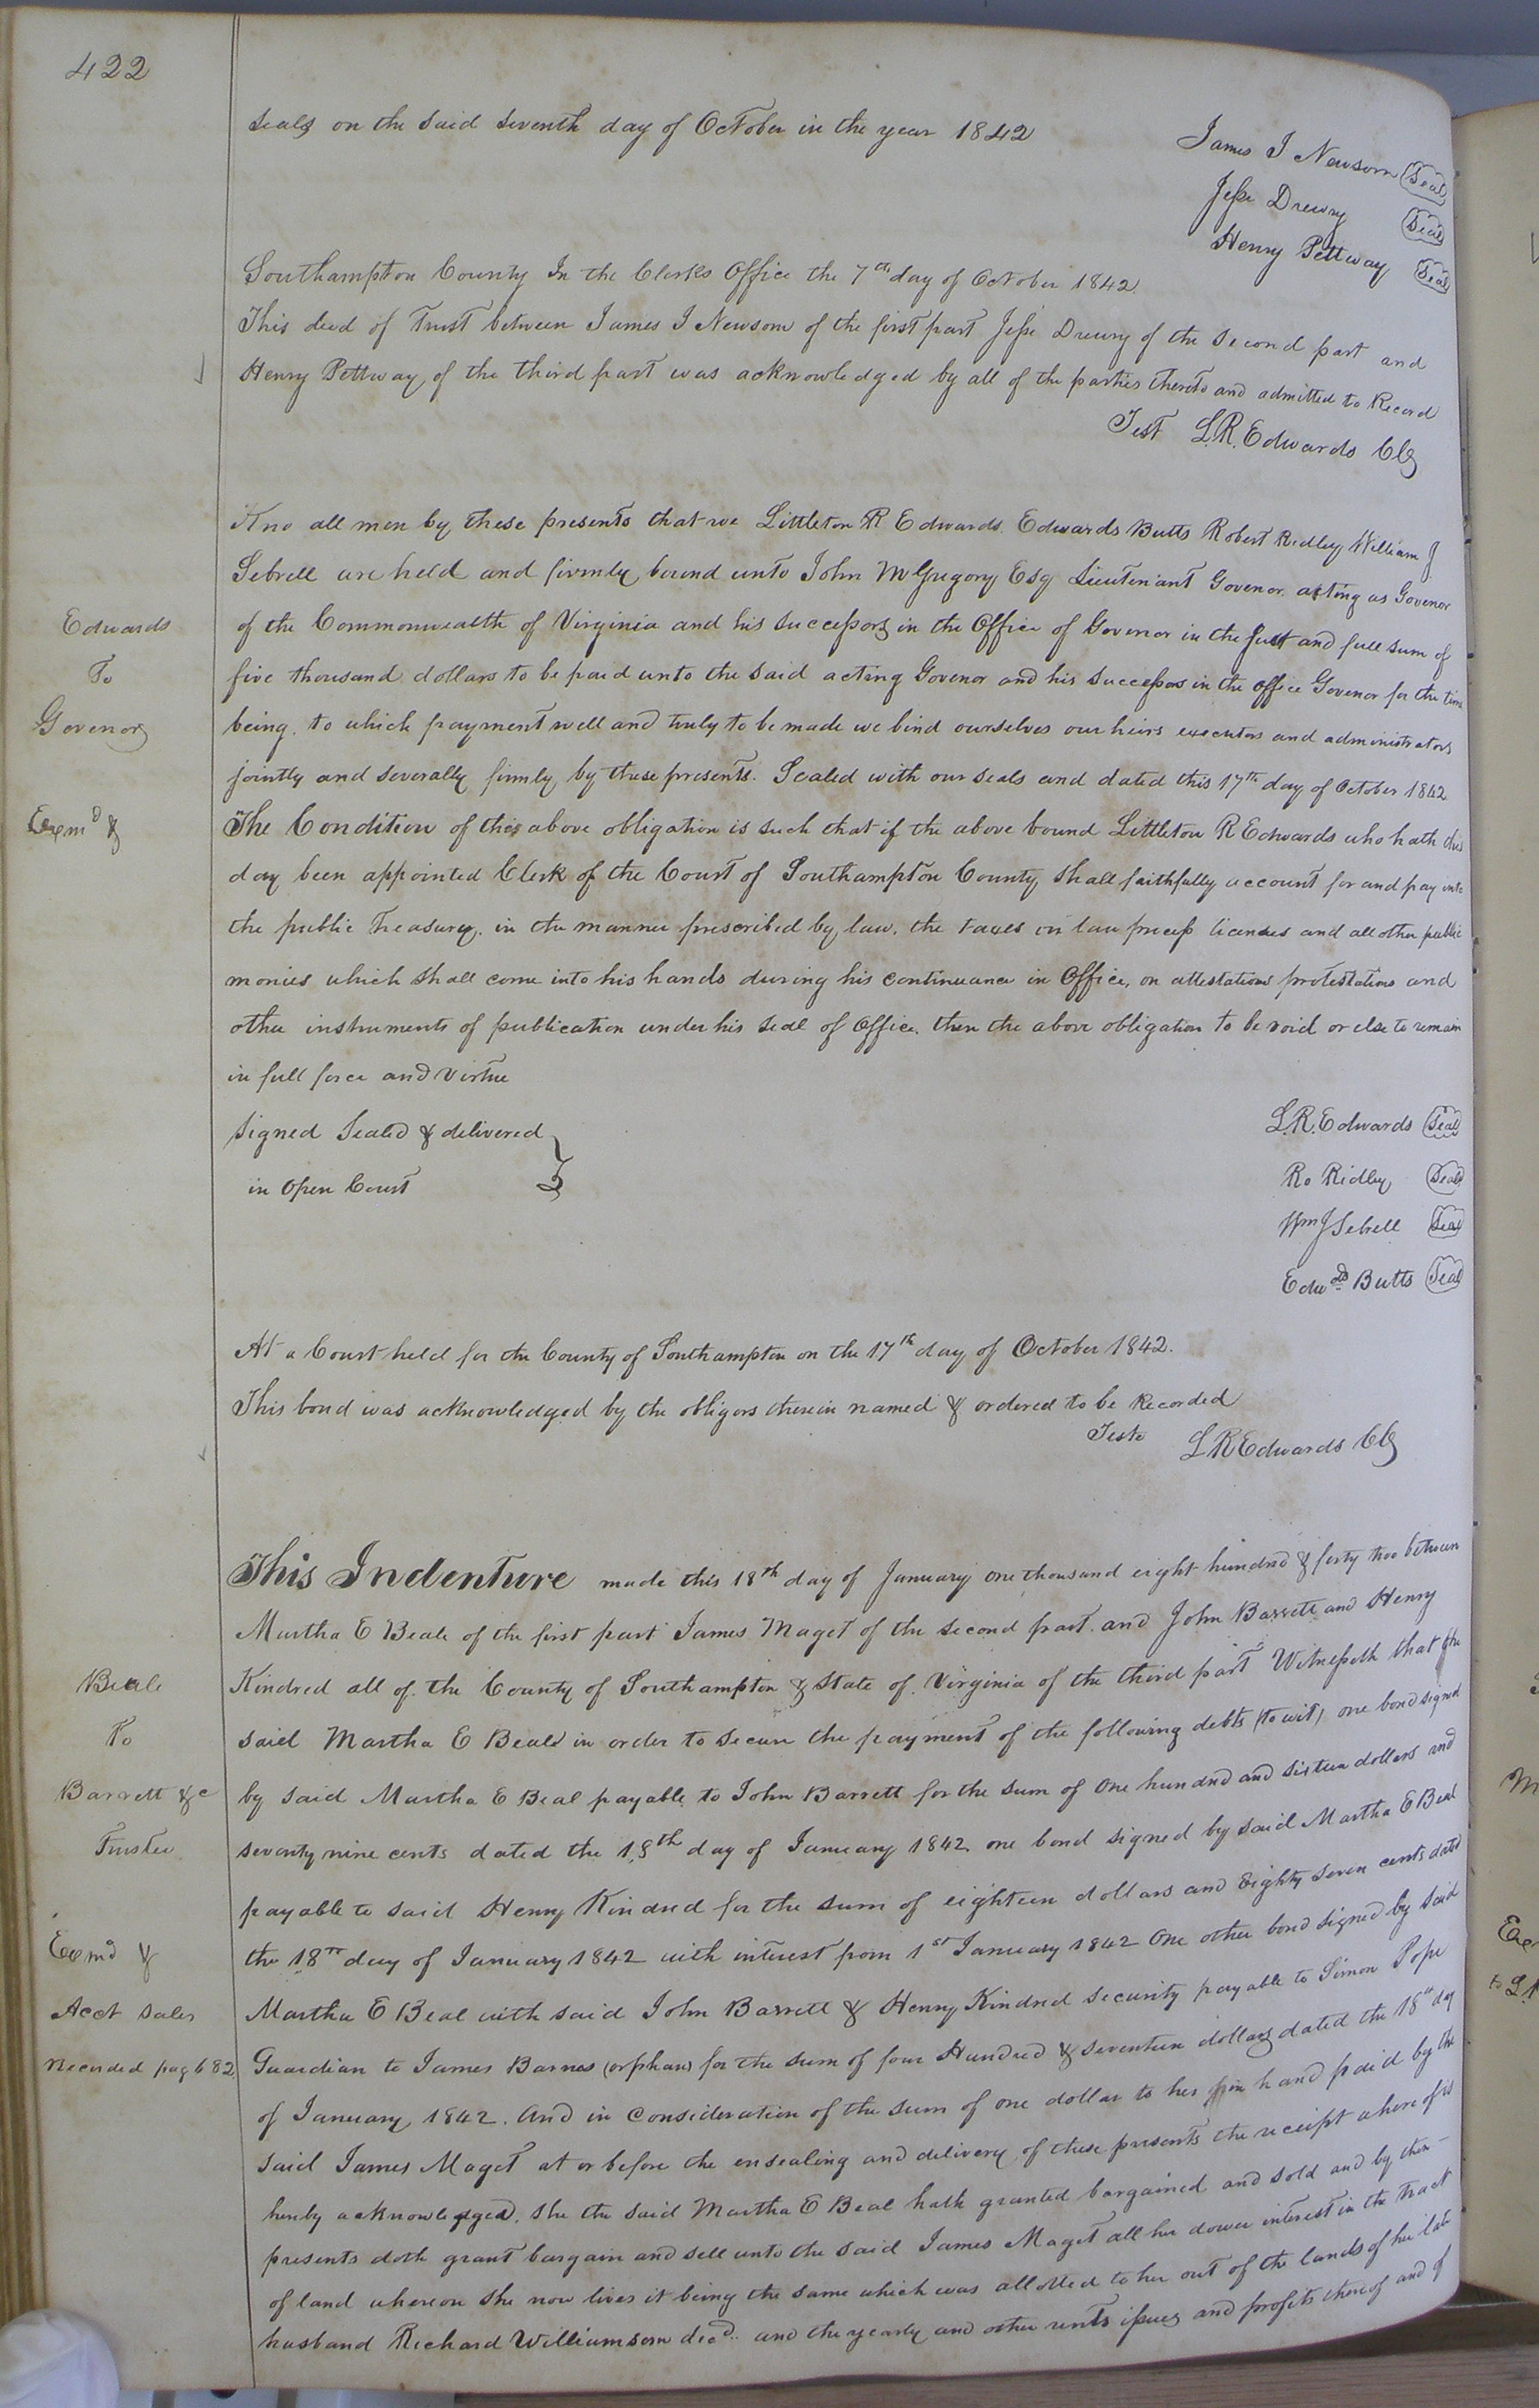 422
seals on the said seventh day of October in the year 1842
James J Newsom Seal
Jesse Drewry Seal
Henry Pettway Seal
Southampton County In the Clerks Office the 7th day of October 1842.
This deed of Trust between James J Newsom of the first part Jesse Drewry of the second part and
Henry Pettway of the third part was acknowledged by all of the parties thereto and admitted to Record
Test L.R. Edwards Clk
Kno all men by these presents that we Littleton R Edwards. Edwards Butts Robert Ridley William J
Sebrell are held and firmly bound unto John M Gregory Esq Lieutenant Govenor acting as Govenor
Edwards
of the Commonwealth of Virginia and his successors in the Office of Govenor in the just and full sum of
To
five thousand dollars to be paid unto the said acting Govenor and his successors in the office Govenor for the time
Govenor
being. to which payment well and truly to be made we bind ourselves our heirs executors and administrators
jointly and severally firmly by these presents. Sealed with our seals and dated this 17th day of October 1842
Exmd &
The Condition of this above obligation is such that if the above bound Littleton R Edwards who hath this
day been appointed Clerk of the Court of Southampton County shall faithfully account for and pay into
the public Treasury. in the manner prescribed by law. the taxes on law process licenses and all other public
monies which shall come into his hands during his continuance in Office, on attestations protestations and
other instruments of publication under his seal of Office. then the above obligation to be void or else to remain
in full force and virtue
Signed Sealed & delivered
in Open Court
L.R. Edwards Seal
Ro Ridley Seal
Wm J Sebrell Seal
Edwds Butts Seal
At a Court held for the County of Southampton on the 17th day of October 1842.
This bond was acknowledged by the obligors therein named & ordered to be Recorded
Teste L R Edwards Clk
This Indenture made this 18th day of January one thousand eight hundred & forty two between
Martha E Beale of the first part James Maget of the second part. and John Barrett and Henry
Beale
Kindred all of the County of Southampton & State of Virginia of the third part Witnesseth that the
To
said Martha E Beale in order to secure the payment of the following debts (to wit) one bond signed
Barrett &c
by said Martha E Beal payable to John Barrett for the sum of One hundred and sixteen dollars and
Trustee
seventy nine cents dated the 18th day of January 1842 one bond signed by said Martha E Beal
payable to said Henry Kindred for the sum of eighteen dollars and Eighty seven cents dated
Exmd &
the 18th day of January 1842 with interest from 1st January 1842 One other bond signed by said
Acct sales
Martha E Beal with said John Barrett & Henry Kindred security payable to Simon Pope
Recorded pag 682
Guardian to James Barnes (orphan) for the sum of four Hundred & seventeen dollars dated the 18th day
of January, 1842. And in consideration of the sum of one dollar to her in hand paid by the
said James Maget at or before the ensealing and delivery of these presents the receipt whereof is
hereby acknowledged. she the said Martha E Beal hath granted bargained and sold and by these
presents doth grant bargain and sell unto the said James Maget all her dower interest in the tract
of land whereon she now lives it being the same which was allotted to her out of the lands of her late
husband Richard Williamson decd. and the yearly and other rents issues and profits thereof and of